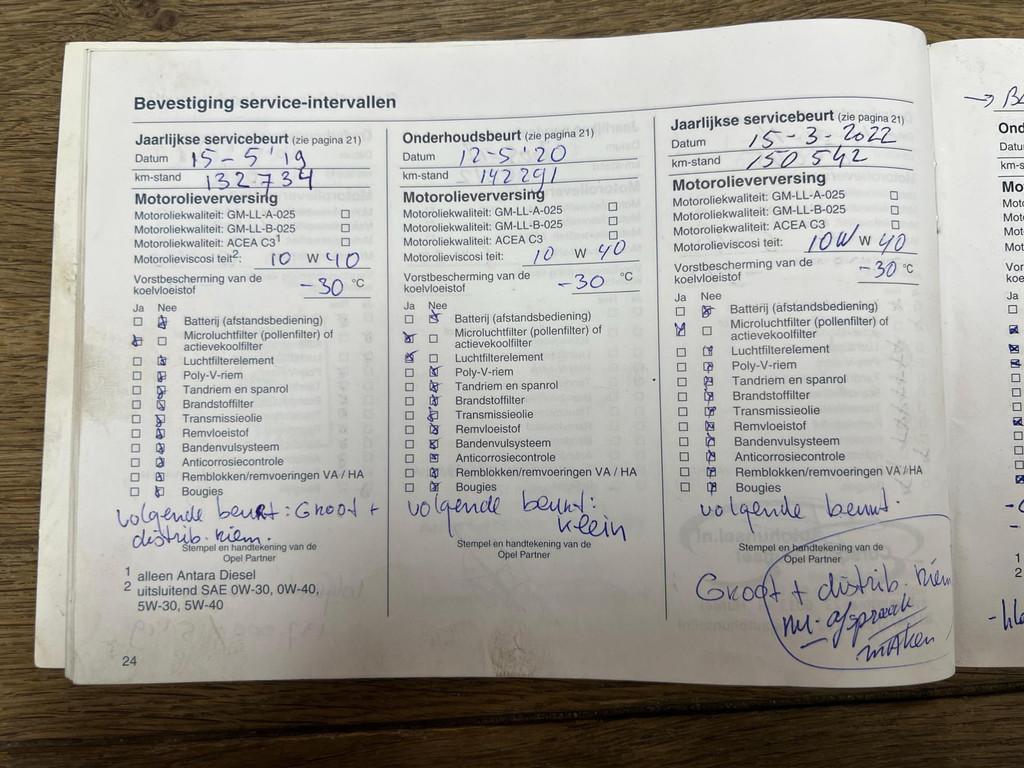 Bevestiging service-intervallen
Jaarlijkse servicebeurt (zie pagina 21)
Datum 15-5'19
km-stand 132.734
Motorolieverversing
Motoroliekwaliteit: GM-LL-A-025
Motoroliekwaliteit: GM-LL-B-025
Motoroliekwaliteit: ACEA C3¹
Motorolieviscosi teit²: 10 W 40
Vorstbescherming van de
koelvloeistof -30 °C
Ja Nee
Batterij (afstandsbediening)
Microluchtfilter (pollenfilter) of
actievekoolfilter
Luchtfilterelement
Poly-V-riem
Tandriem en spanrol
Brandstoffilter
Transmissieolie
Remvloeistof
Bandenvulsysteem
Anticorrosiecontrole
Remblokken/remvoeringen VA / HA
Bougies
volgende beurt: Groot +
distrib. riem.
Stempel en handtekening van de
Opel Partner
1 alleen Antara Diesel
2 uitsluitend SAE 0W-30, 0W-40,
5W-30, 5W-40
24
Onderhoudsbeurt (zie pagina 21)
Datum 12-5'20
km-stand 142291
Motorolieverversing
Motoroliekwaliteit: GM-LL-A-025
Motoroliekwaliteit: GM-LL-B-025
Motoroliekwaliteit: ACEA C3
Motorolieviscosi teit: 10 W 40
Vorstbescherming van de
koelvloeistof -30 °C
Ja Nee
Batterij (afstandsbediening)
Microluchtfilter (pollenfilter) of
actievekoolfilter
Luchtfilterelement
Poly-V-riem
Tandriem en spanrol
Brandstoffilter
Transmissieolie
Remvloeistof
Bandenvulsysteem
Anticorrosiecontrole
Remblokken/remvoeringen VA / HA
Bougies
volgende beurt:
klein
Stempel en handtekening van de
Opel Partner
Jaarlijkse servicebeurt (zie pagina 21)
Datum 15-3-2022
km-stand 150542
Motorolieverversing
Motoroliekwaliteit: GM-LL-A-025
Motoroliekwaliteit: GM-LL-B-025
Motoroliekwaliteit: ACEA C3
Motorolieviscosi teit: 10W W 40
Vorstbescherming van de
koelvloeistof -30 °C
Ja Nee
Batterij (afstandsbediening)
Microluchtfilter (pollenfilter) of
actievekoolfilter
Luchtfilterelement
Poly-V-riem
Tandriem en spanrol
Brandstoffilter
Transmissieolie
Remvloeistof
Bandenvulsysteem
Anticorrosiecontrole
Remblokken/remvoeringen VA / HA
Bougies
volgende beurt:
Stempel en handtekening van de
Opel Partner
Groot + distrib. riem
afspraak
maken
Ja
1
2